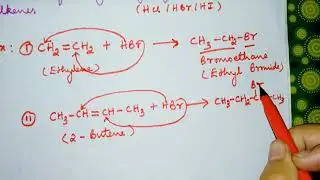 alkenes (HCl/HBr/HI)
x: (i) CH₂=CH₂ + HBr → CH₃-CH₂-Br
(Ethylene) Bromoethane
(Ethyl Bromide)
Br
(ii) CH₃-CH=CH-CH₃ + HBr → CH₃-CH₂-CH-CH₃
(2-Butene)